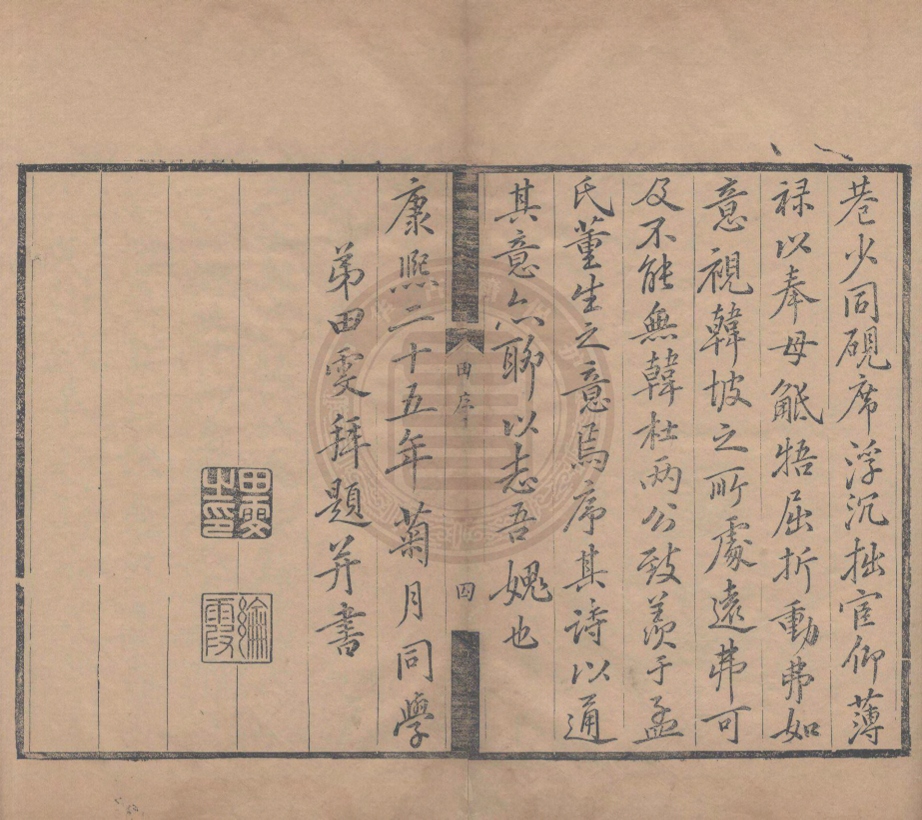 巷少同硯席浮沉拙宦仰薄
禄以奉母觝牾屈折動弗如
意視韓坡之所處遠弗可
及不能無韓杜两公致羨于孟
氏董生之意焉序其詩以通
其意亦聊以志吾媿也
田序
四
康熙二十五年菊月同學
弟田雯拜題并書
田雯之印
綸霞